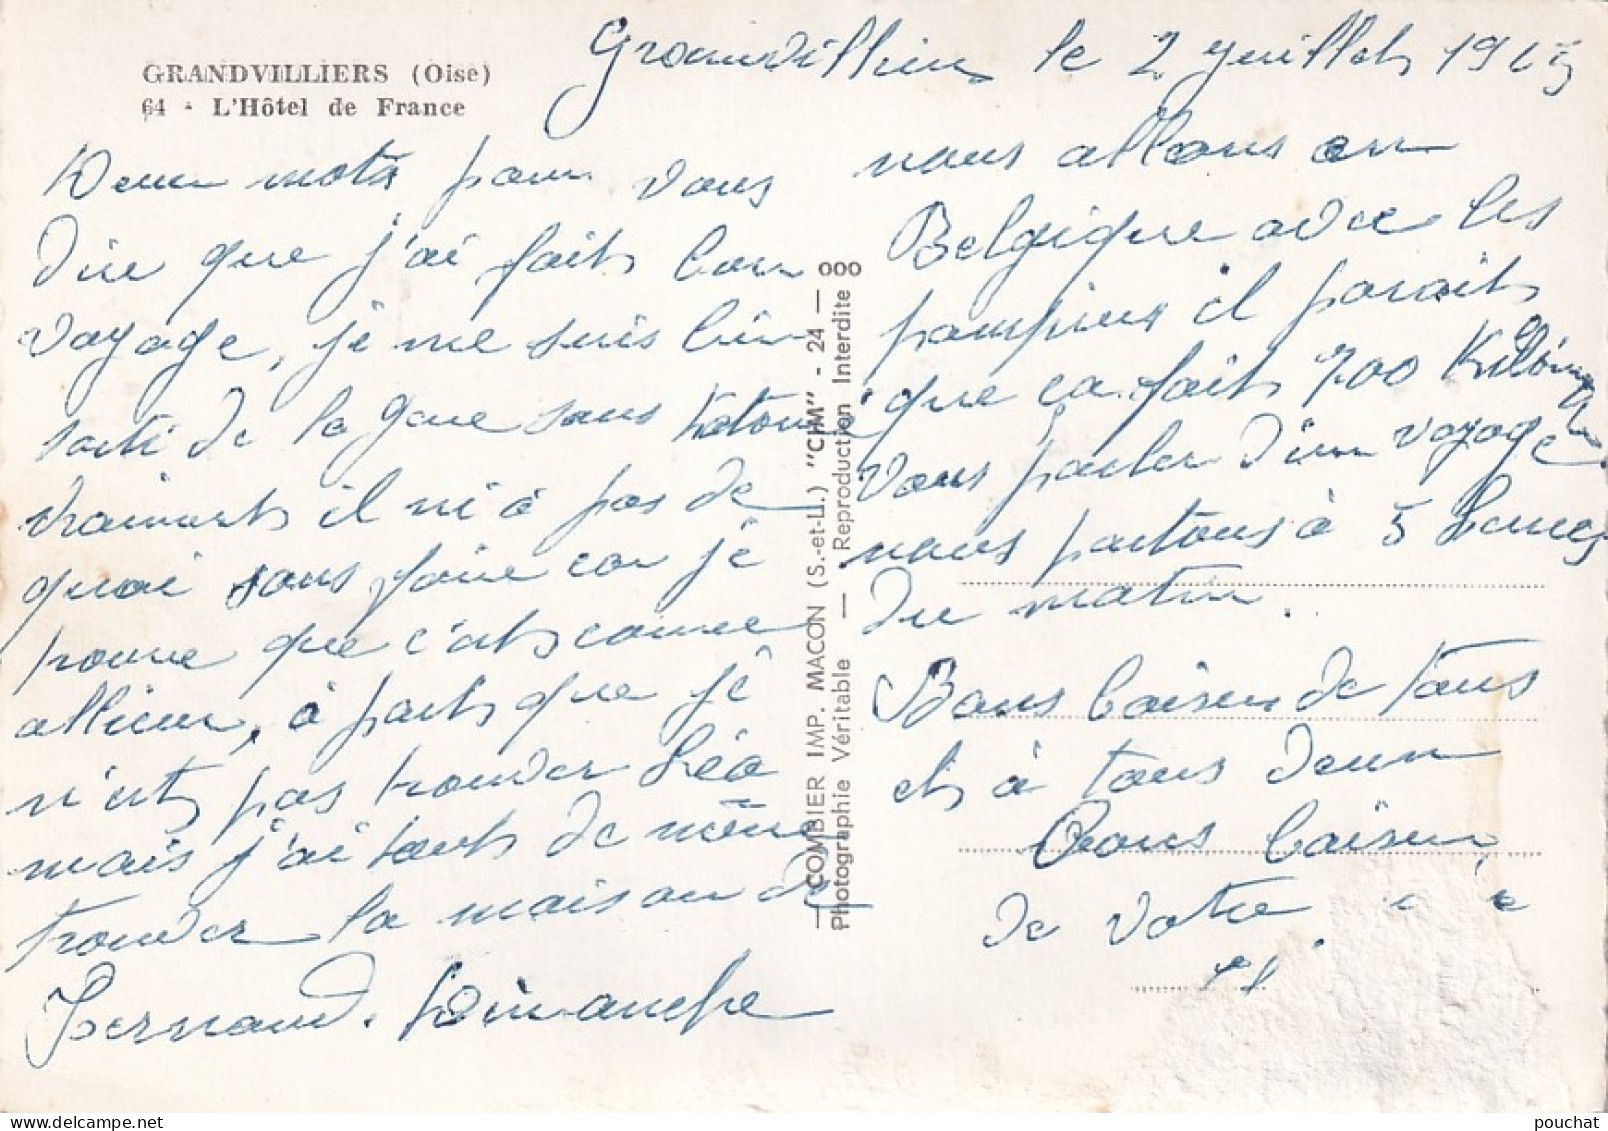 GRANDVILLIERS (Oise)
64 - L'Hôtel de France
le 2 juillet
Deux mots pour vous
dire que j'ai fait bon
voyage, je me suis bien
sorti de la gare sans
vraiment il ni à pas de
quoi sans faire car je
trouve que c'est comme
allieur, à part que je
n'est pas trouver Léo
mais j'ai tout de même
trouver la maison de
Fernand. Dimanche
nous allons en
Belgique avec les
pompiers il parait
que ça fait 700
Vous parler d'un voyage
nous partons à 5 heures
du matin.
Bons baiser de tous
et à tous deux
Bons baiser
de votre
COMBIER IMP. MACON (S.-et-L.) "CIM" - 24 — 000
Photographie Véritable — Reproduction Interdite
pouchat